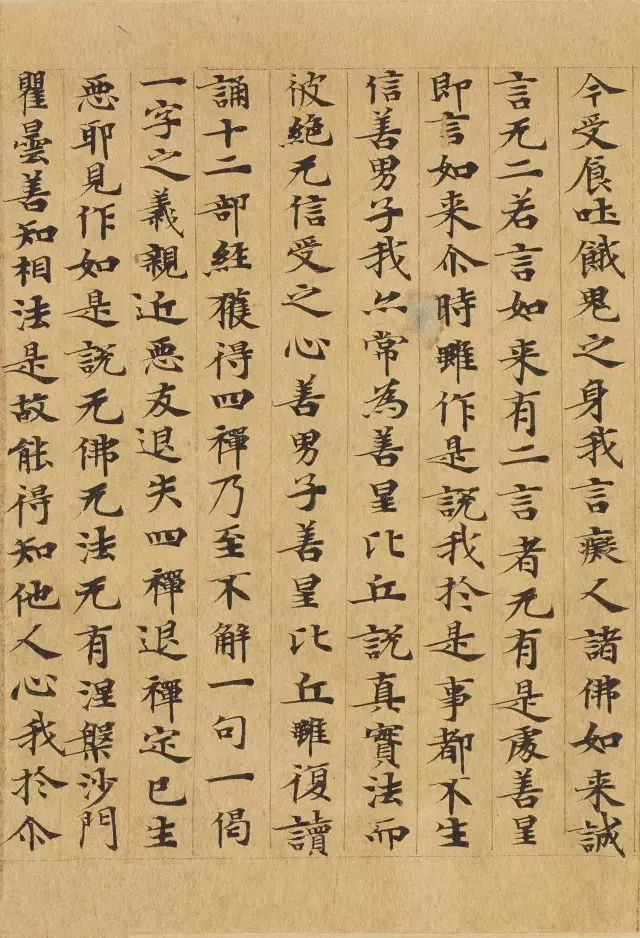 今受食吐餓鬼之身我言癡人諸佛如来誠
言无二若言如来有二言者无有是處善星
即言如来尒時雖作是説我於是事都不生
信善男子我亦常為善星比丘説真實法而
彼絶无信受之心善男子善星比丘雖復讀
誦十二部經獲得四禪乃至不解一句一偈
一字之義親近惡友退失四禪退禪定已生
惡耶見作如是説无佛无法无有涅槃沙門
瞿曇善知相法是故能得知他人心我於尒